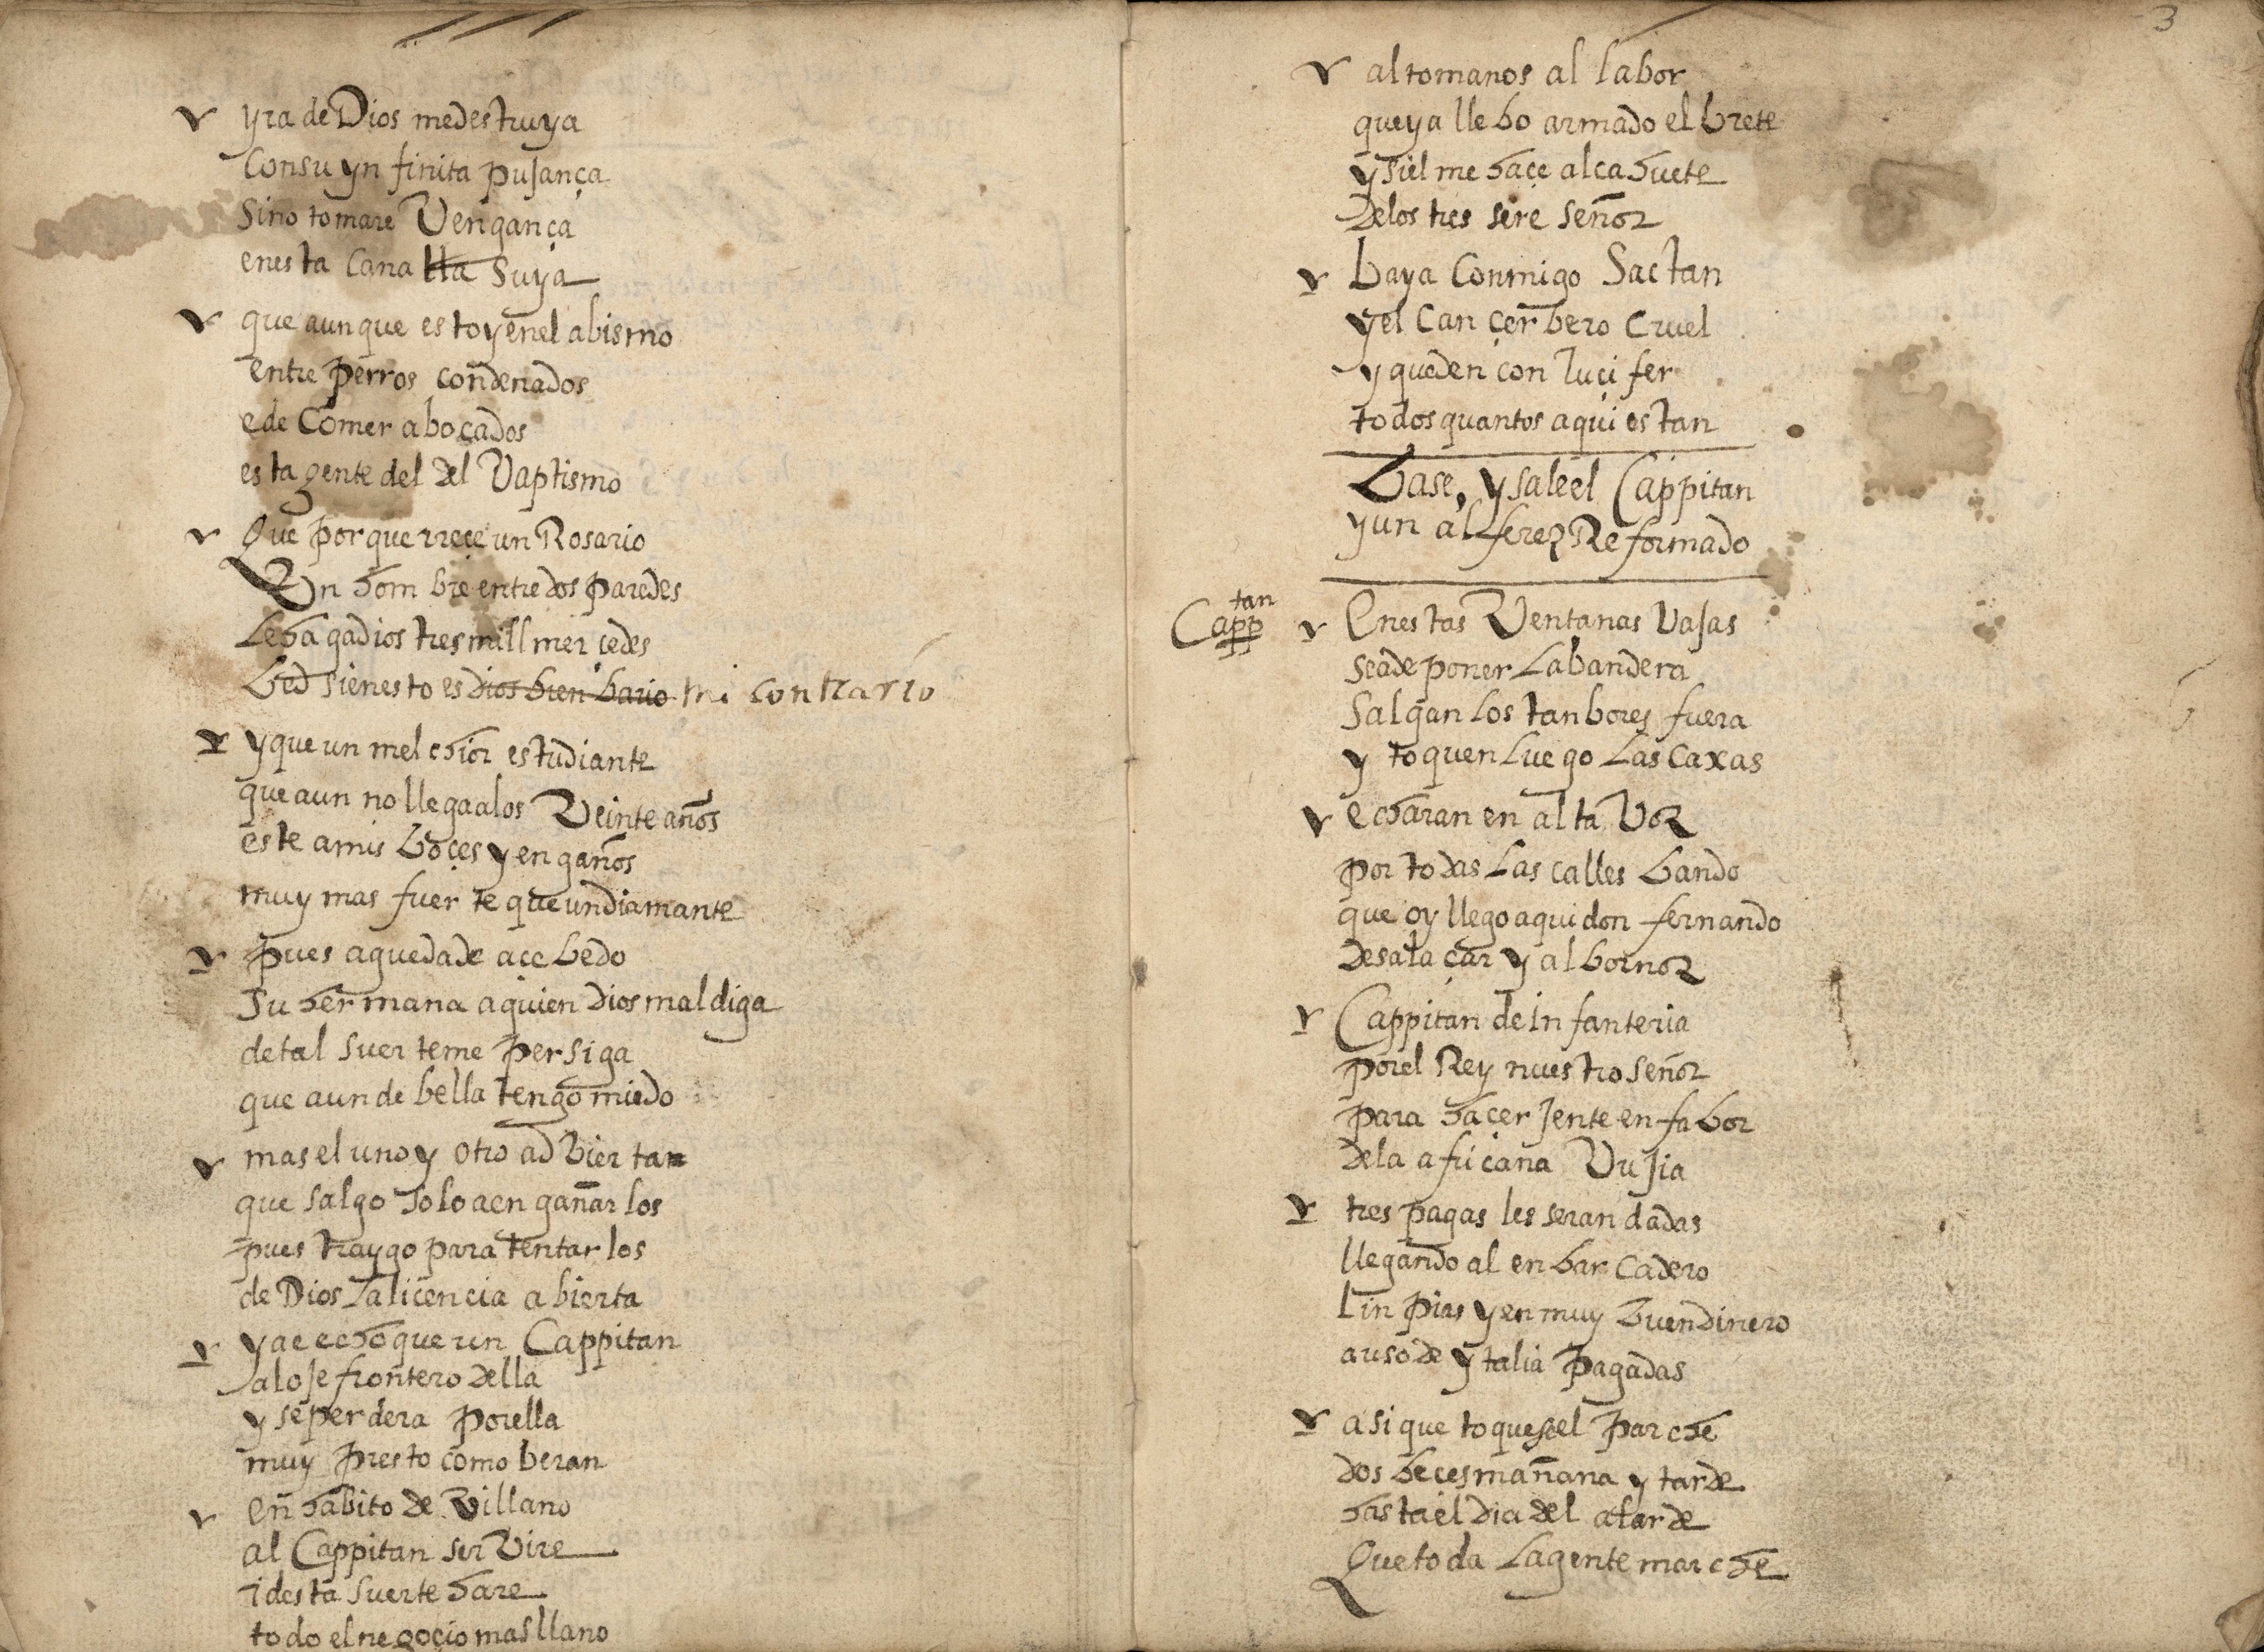 yra de Dios me destruya
Con su ynfinita pujança
Sino tomare Vengança
en esta Canalla Suya
que aunque estoy en el abismo
entre perros condenados
e de Comer a bocados
esta gente del del Vaptismo
Que porque rreçe un Rosario
Un hombre entre dos paredes
Le haga dios tres mill merçedes
bed si en esto es dios bien bario mi contrario
y que un melchior estudiante
que aun no llega a los Veinte años
este a mis boçes y engaños
muy mas fuerte que un diamante
pues agueda de açebedo
su hermana a quien Dios maldiga
de tal suerte me persiga
que aun de bella tengo miedo
mas el uno y otro adviertan
que salgo solo a engañarlos
pues traygo para tentarlos
de Dios La licencia abierta
y ae echo que un Cappitan
aloje frontero della
y se perdera por ella
muy presto como beran
en habito de Villano
al Cappitan serVire
i desta suerte hare
todo el negoçio mas llano
3
alto manos al labor
que ya llebo armado el brete
y si el me haçe alcahuete
De los tres sere señor
baya Conmigo Sactan
y el Can çerbero Cruel
y queden con luçifer
todos quantos aqui estan
base, y sale el Cappitan
y un alferez Reformado
Capptan
En estas Ventanas Vajas
se a de poner La bandera
Salgan Los tanbores fuera
y toquen Luego Las Caxas
echaran en alta Voz
por todas Las calles bando
que oy llego aqui don fernando
de salaçar y albornoz
Cappitan de infanteria
por el Rey nuestro señor
para haçer jente en fabor
de la africana Vujia
tres pagas les seran dadas
llegando al enbarcadero
linpias y en muy buen dinero
a uso de ytalia pagadas
asi que toquese el parche
dos beçes mañana y tarde
hasta el dia del alarde
Que toda La gente marche